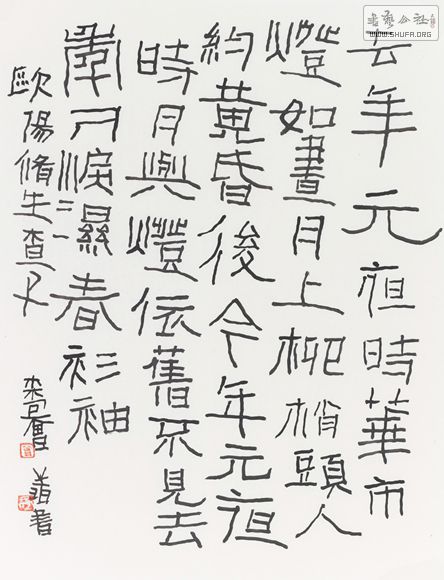 书艺公社
WWW.SHUFA.ORG
去年元亱時華市
燈如晝月上柳梢頭人
約黃昏後今年元亱
時月與燈依舊不見去
年人淚濕春衫袖
歐陽脩生查子